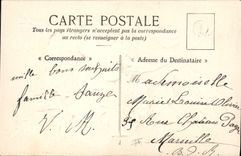 CARTE POSTALE
Tous les pays étrangers n'acceptent pas la correspondance
au recto (se renseigner à la poste)
« Correspondance »
« Adresse du Destinataire »
mille bons souhaits
famille
V. M.
Mademoiselle
Marie Louise Olivier
35 Rue Château
Marseille
B. d. R.